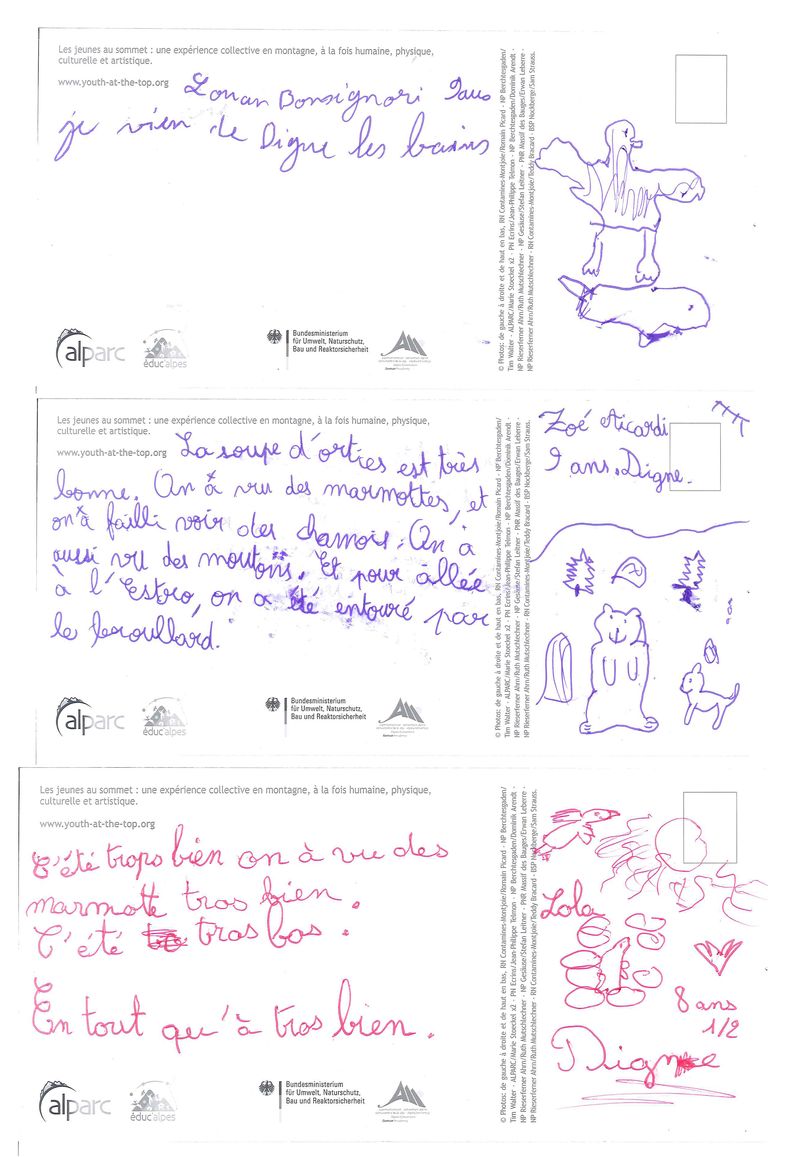 Les jeunes au sommet : une expérience collective en montagne, à la fois humaine, physique,
culturelle et artistique.
www.youth-at-the-top.org
Lonan Bonsignori 9ans
je vien de Digne les bains
alparc
éduc'alpes
Bundesministerium
für Umwelt, Naturschutz,
Bau und Reaktorsicherheit
© Photos: de gauche à droite et de haut en bas, RN Contamines-Montjoie/Romain Picard - NP Berchtesgaden/
Tim Walter - ALPARC/Marie Stoeckel x2 - PN Ecrins/Jean-Philippe Telmon - NP Berchtesgaden/Dominik Arendt -
NP Rieserferner Ahrn/Ruth Mutschlechner - NP Gesäuse/Stefan Leitner - PNR Massif des Bauges/Erwan Leberre -
NP Rieserferner Ahrn/Ruth Mutschlechner - RN Contamines-Montjoie/Teddy Bracard - BSP Nockberge/Sam Strauss.
Les jeunes au sommet : une expérience collective en montagne, à la fois humaine, physique,
culturelle et artistique.
www.youth-at-the-top.org
La soupe d'orties est très
bonne. On à vu des marmottes, et
on à failli voir des chamois. On à
aussi vu des moutons. Et pour allée
à l'Estro, on a été entouré par
le brouillard.
alparc
éduc'alpes
Bundesministerium
für Umwelt, Naturschutz,
Bau und Reaktorsicherheit
© Photos: de gauche à droite et de haut en bas, RN Contamines-Montjoie/Romain Picard - NP Berchtesgaden/
Tim Walter - ALPARC/Marie Stoeckel x2 - PN Ecrins/Jean-Philippe Telmon - NP Berchtesgaden/Dominik Arendt -
NP Rieserferner Ahrn/Ruth Mutschlechner - NP Gesäuse/Stefan Leitner - PNR Massif des Bauges/Erwan Leberre -
NP Rieserferner Ahrn/Ruth Mutschlechner - RN Contamines-Montjoie/Teddy Bracard - BSP Nockberge/Sam Strauss.
Zoé Aicardi
9 ans. Digne.
Les jeunes au sommet : une expérience collective en montagne, à la fois humaine, physique,
culturelle et artistique.
www.youth-at-the-top.org
C'été trops bien on à vu des
marmotte tros bien.
C'été tros bas.
En tout qu'à tros bien.
alparc
éduc'alpes
Bundesministerium
für Umwelt, Naturschutz,
Bau und Reaktorsicherheit
© Photos: de gauche à droite et de haut en bas, RN Contamines-Montjoie/Romain Picard - NP Berchtesgaden/
Tim Walter - ALPARC/Marie Stoeckel x2 - PN Ecrins/Jean-Philippe Telmon - NP Berchtesgaden/Dominik Arendt -
NP Rieserferner Ahrn/Ruth Mutschlechner - NP Gesäuse/Stefan Leitner - PNR Massif des Bauges/Erwan Leberre -
NP Rieserferner Ahrn/Ruth Mutschlechner - RN Contamines-Montjoie/Teddy Bracard - BSP Nockberge/Sam Strauss.
Lola
8 ans
1/2
Digne